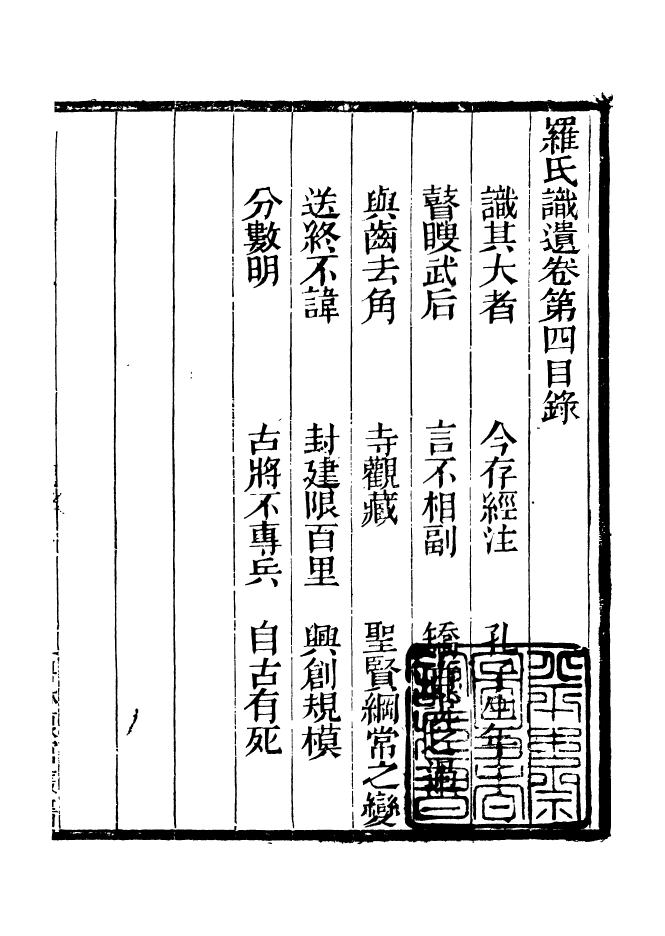 羅氏識遺卷第四目錄
識其大者 今存經注 孔子生年
瞽瞍武后 言不相副 矯之過
與齒去角 寺觀藏 聖賢綱常之變
送終不諱 封建限百里 興創規模
分數明 古將不專兵 自古有死